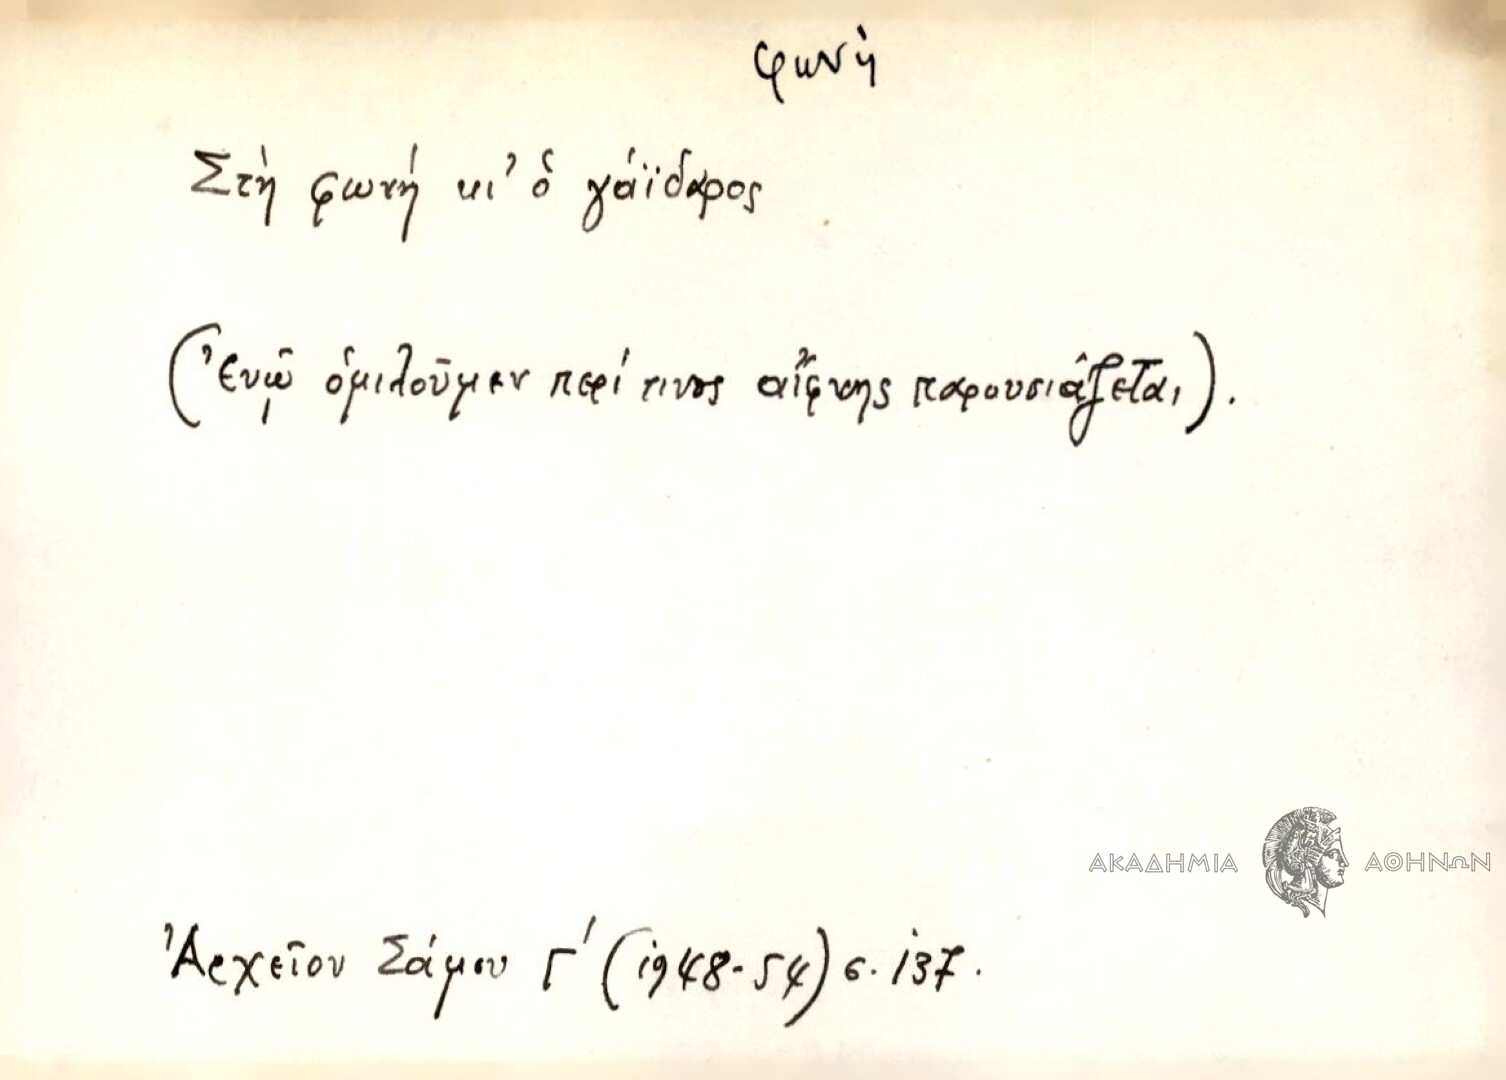 φωνὴ
Στὴ φωνή κι' ὁ γάϊδαρος
(Ἐνῷ ὁμιλοῦμεν περί τινος αἴφνης παρουσιάζεται).
ΑΚΑΔΗΜΙΑ ΑΘΗΝΩΝ
Ἀρχεῖον Σάμου Γ' (1948-54) σ. 137.